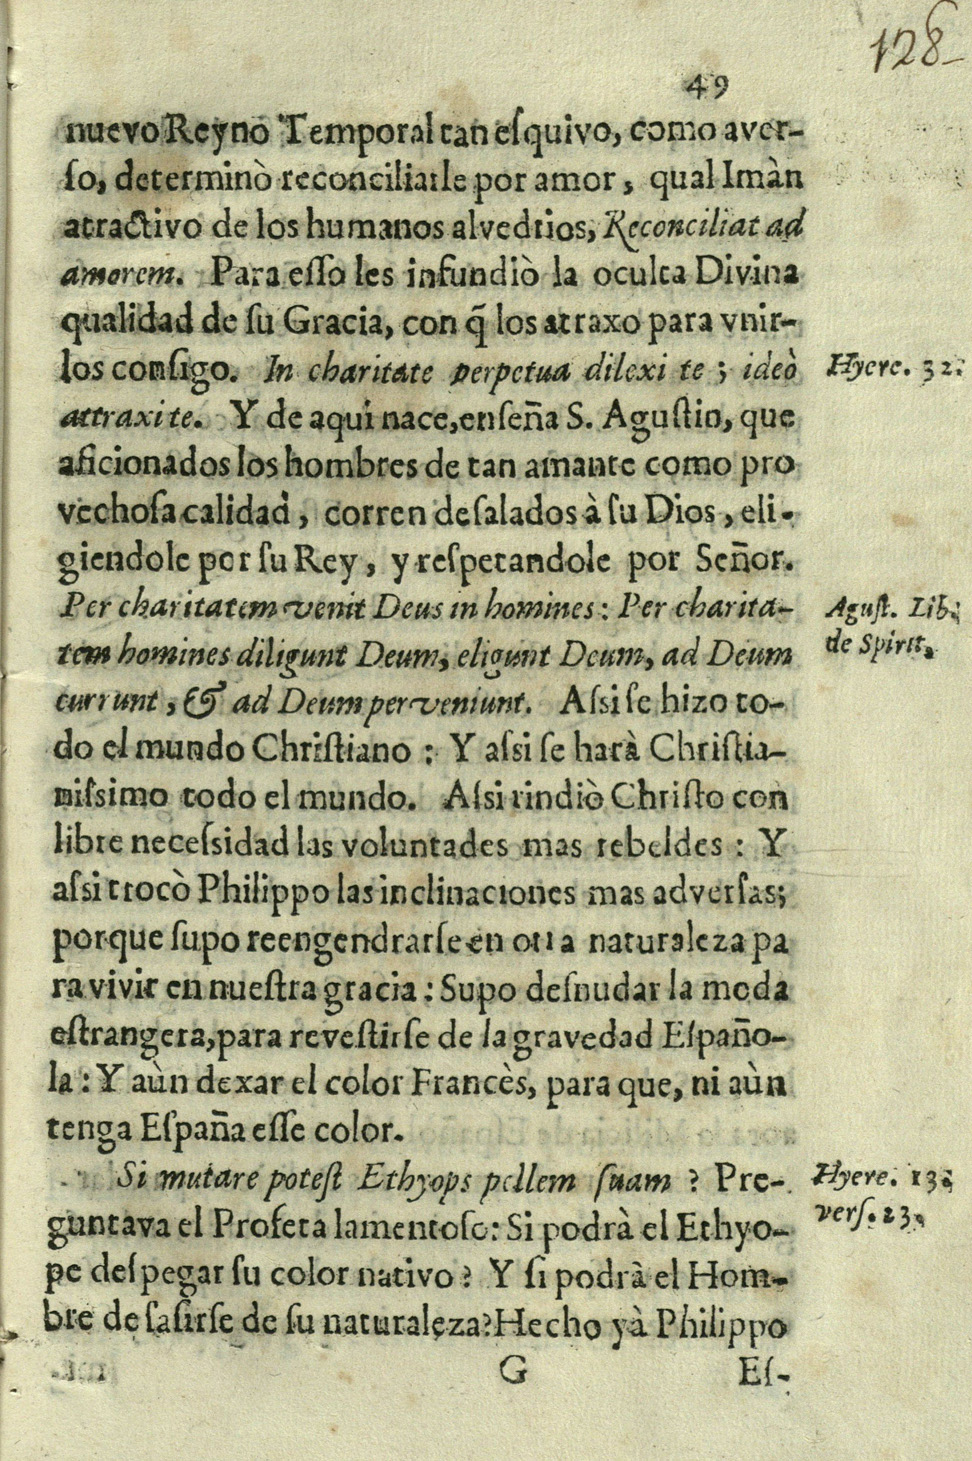 128
49
nuevo Reyno Temporal tan esquivo, como aver-
so, determinò reconciliarle por amor, qual Imàn
atractivo de los humanos alvedrios, Reconciliat ad
amorem. Para esso les infundiò la oculta Divina
qualidad de su Gracia, con q̃ los atraxo para vnir-
los consigo. In charitate perpetua dilexi te; ideò
Hyere. 32.
attraxi te. Y de aqui nace, enseña S. Agustin, que
aficionados los hombres de tan amante como pro
vechosa calidad, corren desalados à su Dios, eli-
giendole por su Rey, y respetandole por Señor.
Per charitatem venit Deus in homines: Per charita-
Agust. Lib.
tem homines diligunt Deum, eligunt Deum, ad Deum
de Spirit.
currunt, & ad Deum perveniunt. Assi se hizo to-
do el mundo Christiano: Y assi se harà Christia-
nissimo todo el mundo. Assi rindiò Christo con
libre necessidad las voluntades mas rebeldes: Y
assi trocò Philippo las inclinaciones mas adversas;
porque supo reengendrarse en otra naturaleza pa
ra vivir en nuestra gracia: Supo desnudar la moda
estrangera, para revestirse de la gravedad Españo-
la: Y aùn dexar el color Francès, para que, ni aùn
tenga España esse color.
Si mutare potest Ethyops pellem suam? Pre-
Hyere. 13.
guntava el Profeta lamentoso: Si podrà el Ethyo-
vers. 23.
pe despegar su color nativo? Y si podrà el Hom-
bre desasirse de su naturaleza? Hecho yà Philippo
G
Es-